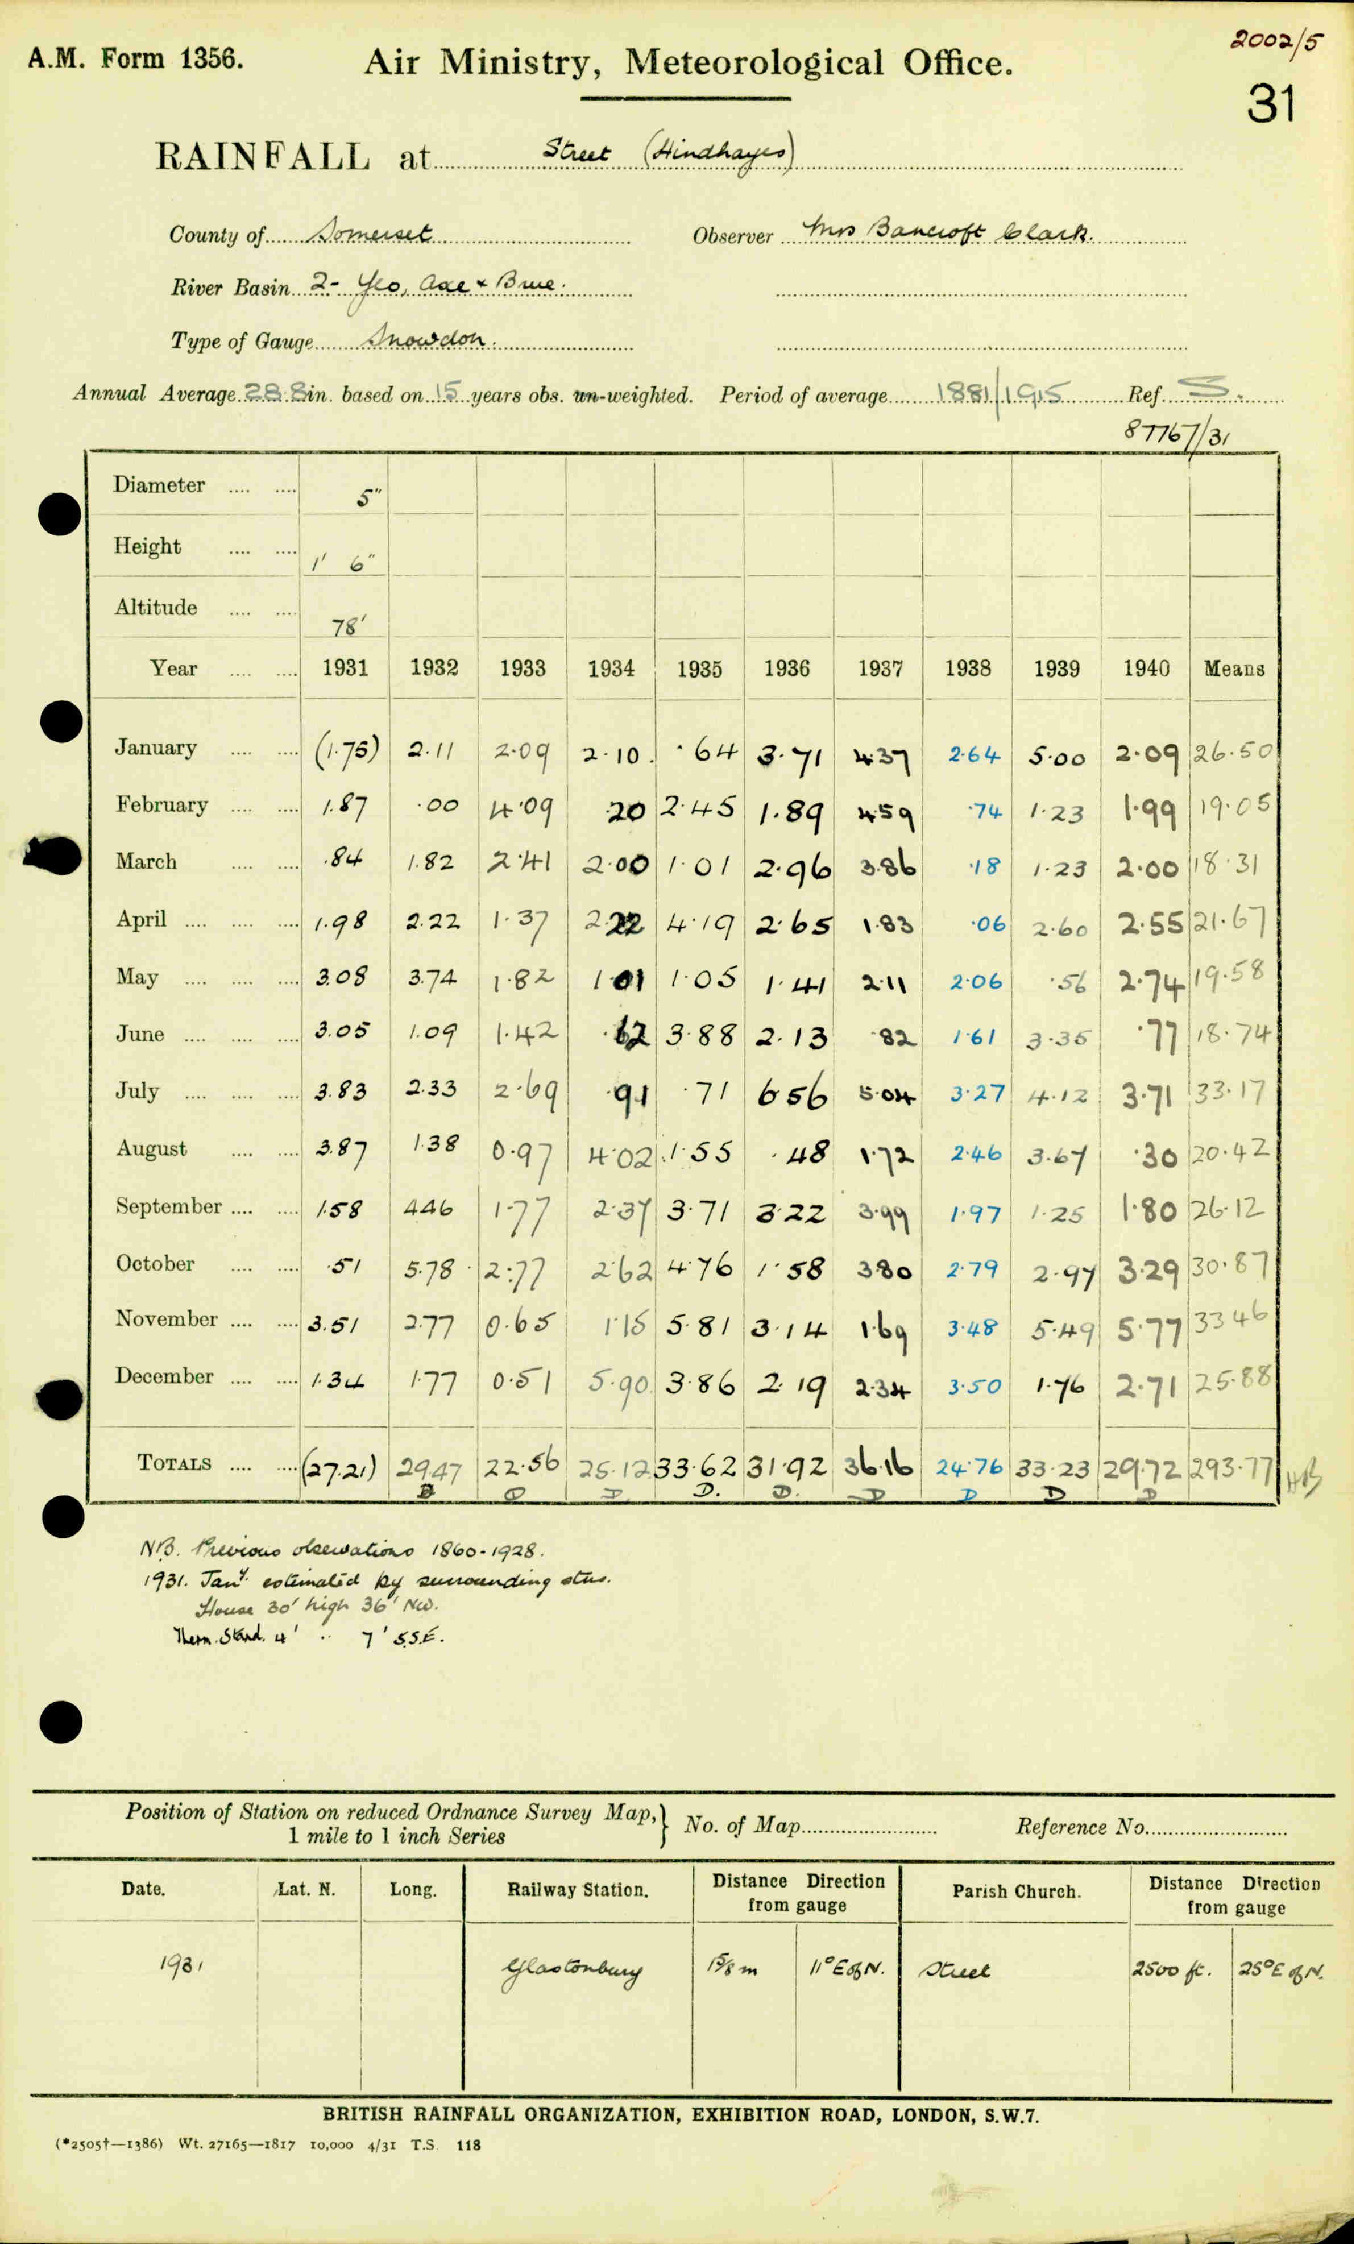 2002/5
A.M. Form 1356. Air Ministry, Meteorological Office.
31
RAINFALL at Street (Hindhayes)
County of Somerset Observer Mrs Bancroft Clark.
River Basin 2- Yeo, Axe & Brue.
Type of Gauge Snowdon.
Annual Average 28.8 in. based on 15 years obs. un-weighted. Period of average 1881/1915 Ref. S.
87767/31
Diameter .... .... 5"
Height .... .... 1' 6"
Altitude .... .... 78'
Year .... .... 1931 1932 1933 1934 1935 1936 1937 1938 1939 1940 Means
January .... .... (1.75) 2.11 2.09 2.10 .64 3.71 4.37 2.64 5.00 2.09 26.50
February .... .... 1.87 .00 4.09 .20 2.45 1.89 4.59 .74 1.23 1.99 19.05
March .... .... .84 1.82 2.41 2.00 1.01 2.96 3.86 .18 1.23 2.00 18.31
April .... .... .... 1.98 2.22 1.37 2.22 4.19 2.65 1.83 .06 2.60 2.55 21.67
May .... .... .... 3.08 3.74 1.82 1.01 1.05 1.41 2.11 2.06 .56 2.74 19.58
June .... .... .... 3.05 1.09 1.42 .62 3.88 2.13 .82 1.61 3.35 .77 18.74
July .... .... .... 3.83 2.33 2.69 .91 .71 6.56 5.04 3.27 4.12 3.71 33.17
August .... .... 3.87 1.38 0.97 4.02 1.55 .48 1.72 2.46 3.67 .30 20.42
September .... .... 1.58 4.46 1.77 2.37 3.71 3.22 3.99 1.97 1.25 1.80 26.12
October .... .... .51 5.78 2.77 2.62 4.76 1.58 3.80 2.79 2.97 3.29 30.87
November .... .... 3.51 2.77 0.65 1.15 5.81 3.14 1.69 3.48 5.49 5.77 33.46
December .... .... 1.34 1.77 0.51 5.90 3.86 2.19 2.34 3.50 1.76 2.71 25.88
TOTALS .... .... (27.21) 29.47 22.56 25.12 33.62 31.92 36.16 24.76 33.23 29.72 293.77 HB
D D D. D. D D D D
NB. Previous observations 1860-1928.
1931. Jany. estimated by surrounding stns.
House 30' high 36' NW.
Therm. Stand. 4' .. 7' S.S.E.
Position of Station on reduced Ordnance Survey Map, 1 mile to 1 inch Series } No. of Map Reference No.
Date. Lat. N. Long. Railway Station. Distance Direction from gauge Parish Church. Distance Direction from gauge
1931 Glastonbury 1 5/8 m 11° E of N. Street 2500 ft. 25° E of N.
BRITISH RAINFALL ORGANIZATION, EXHIBITION ROAD, LONDON, S.W.7.
(*2505†—1386) Wt. 27165—1817 10,000 4/31 T.S. 118